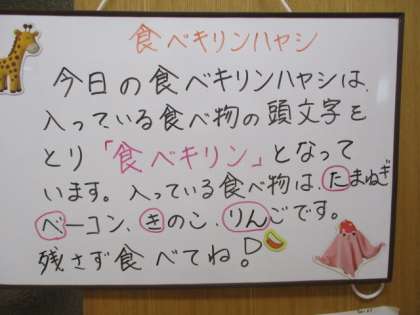 食べキリンハヤシ
今日の食べキリンハヤシは、
入っている食べ物の頭文字を
とり「食べキリン」となって
います。入っている食べ物は、たまねぎ
ベーコン、きのこ、りんごです。
残さず食べてね!